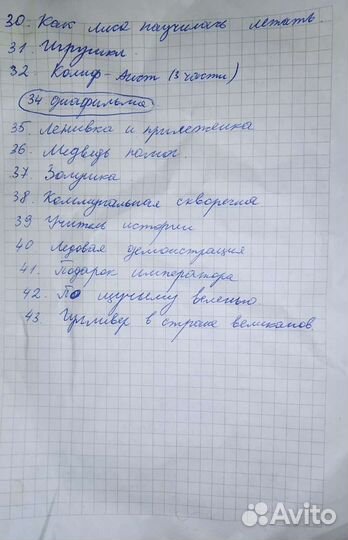 30. Как лиса научилась летать.
31. Игрушки.
32. Калиф-Аист (3 части)
34 диафильма
35. Ленивка и прилежница
36. Медведь помог
37. Золушка
38. Коммунальная скворечня
39 Учитель истории
40 Ледовая демонстрация
41. Подарок императора
42. По щучьему веленью
43. Гулливер в стране великанов
Avito